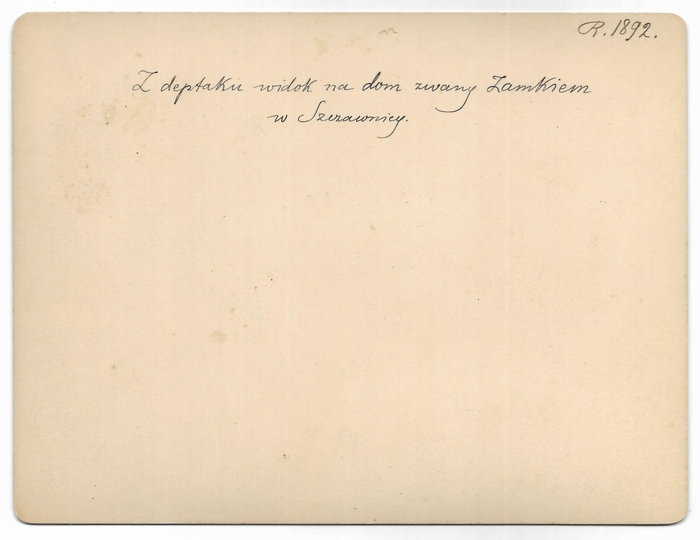 R. 1892.
Z deptaku widok na dom zwany Zamkiem
w Szczawnicy.